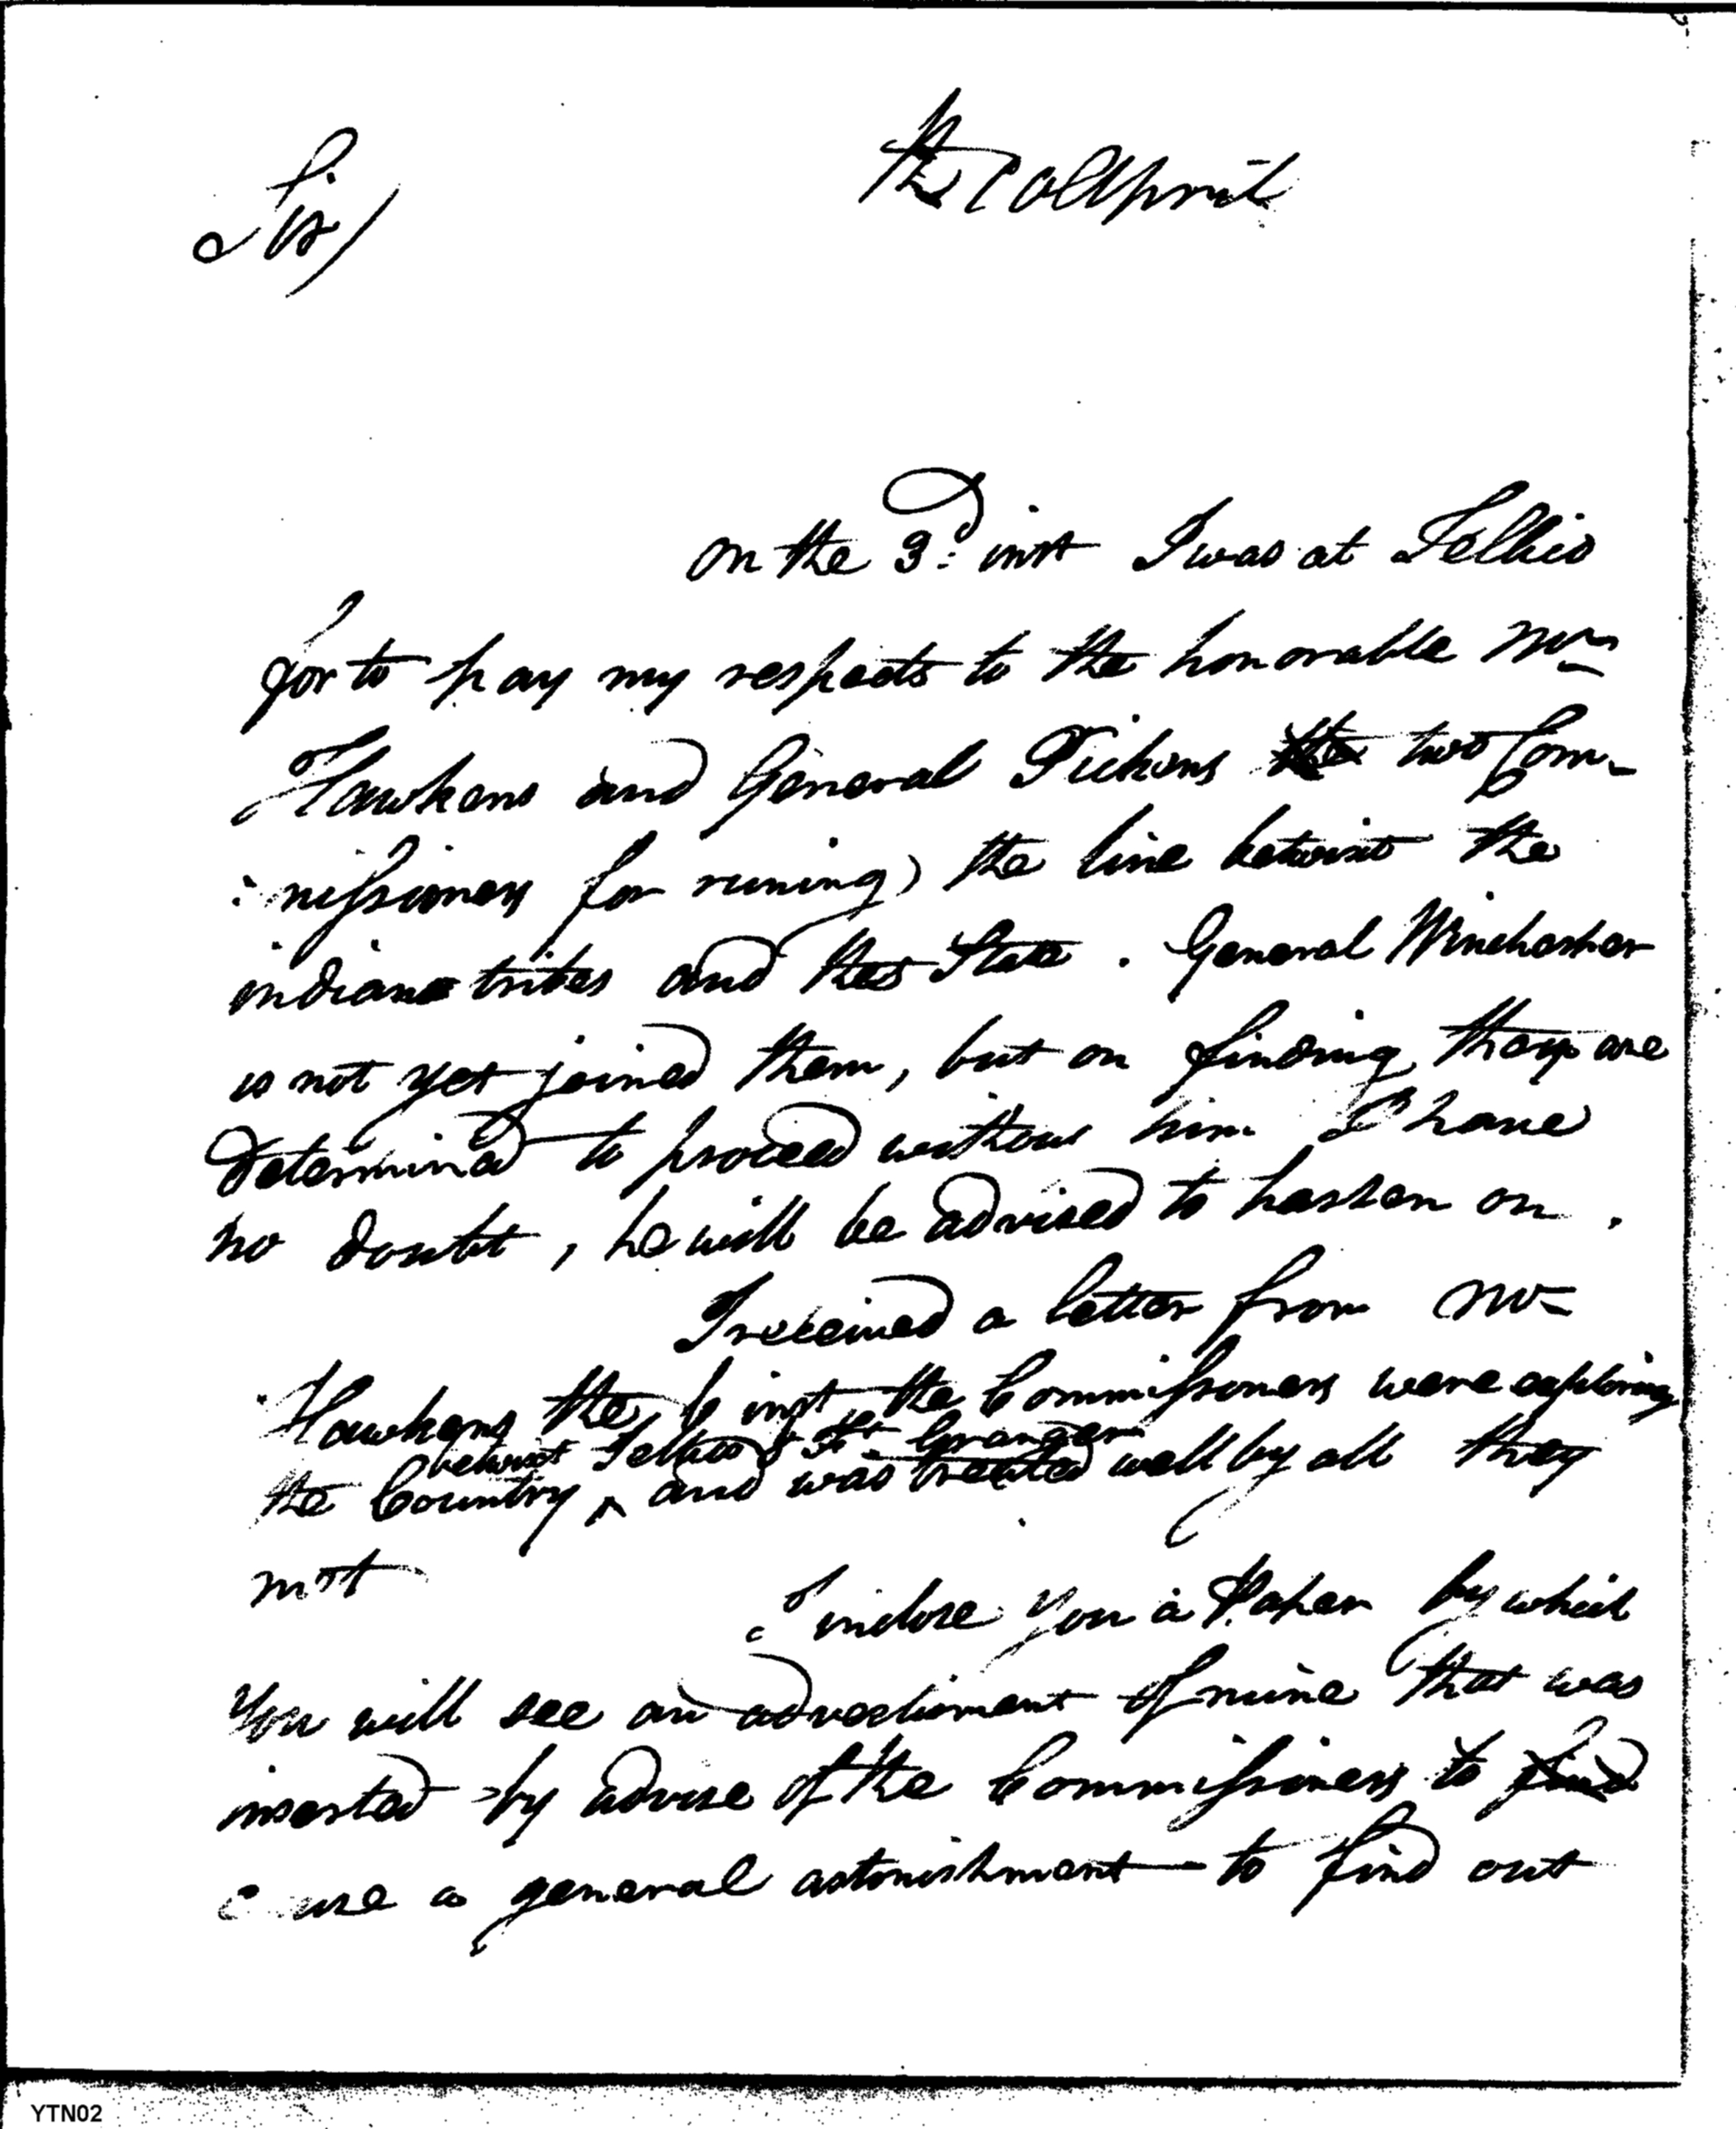 Sir/
the 10 April
on the 3.d inst I was at Tellico
for to pay my respects to the honorable Mr
Hawkens and General Pickens the two Com-
:missioners for runing the line betwixt the
indians tribes and this State . General Winchester
is not yet joined them, but on finding they are
determined to proceed without him I have
no doubt, he will be advised to hasten on .
I received a letter from Mr
Hawkens the 6 inst the Commissioners were exploring
betwixt Tellico & Ft. Granger
the Country ^ and was treated well by all they
mett
I inclose you a Paper by which
You will see an advertisment of mine that was
inserted by advise of the Commissioners to find
cause a general astonishment to find out
YTN02